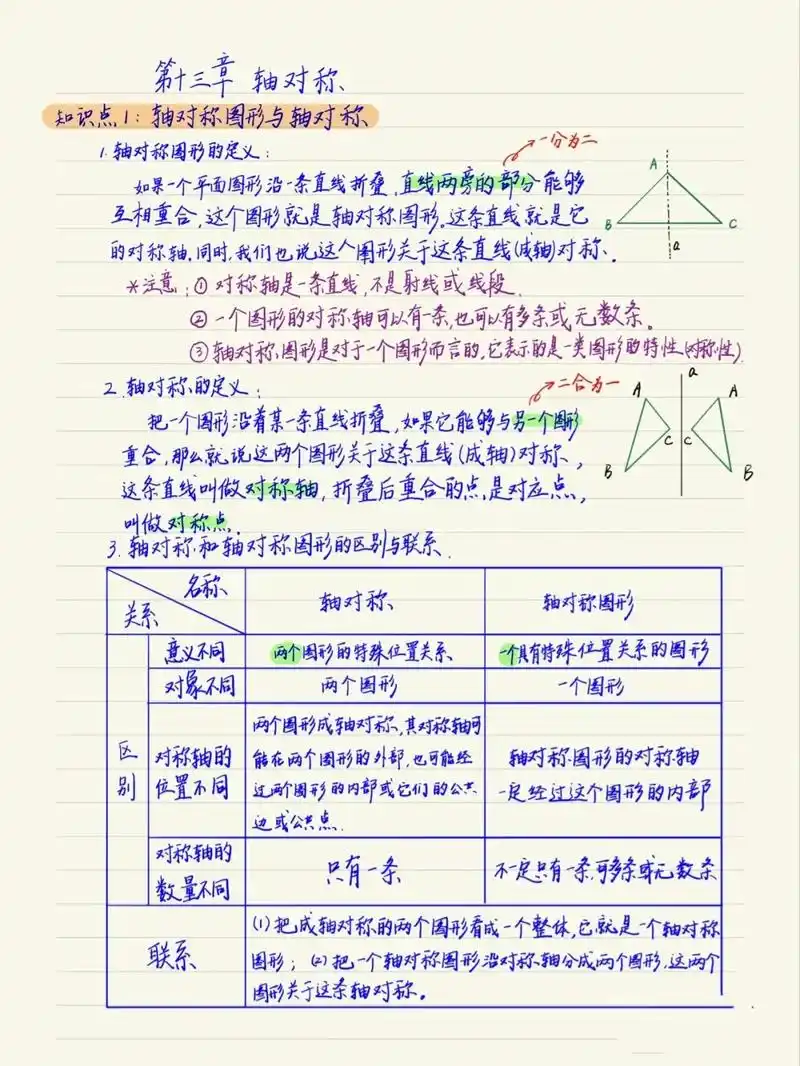 第十三章 轴对称
知识点1：轴对称图形与轴对称
1.轴对称图形的定义：
一分为二
如果一个平面图形沿一条直线折叠，直线两旁的部分能够
互相重合，这个图形就是轴对称图形，这条直线就是它
的对称轴，同时，我们也说这个图形关于这条直线(成轴)对称、
A
B
C
a
*注意：①对称轴是一条直线，不是射线或线段.
②一个图形的对称轴可以有一条，也可以有多条或无数条。
③轴对称图形是对于一个图形而言的，它表示的是一类图形的特性(对称性)
2.轴对称的定义：
二合为一
把一个图形沿着某一条直线折叠，如果它能够与另一个图形
重合，那么就说这两个图形关于这条直线(成轴)对称，
这条直线叫做对称轴，折叠后重合的点，是对应点，
叫做对称点.
a
A
A
C
C
B
B
3.轴对称和轴对称图形的区别与联系.
名称
关系
轴对称
轴对称图形
区别
意义不同
两个图形的特殊位置关系
一个具有特殊位置关系的图形
对象不同
两个图形
一个图形
对称轴的
位置不同
两个图形成轴对称，其对称轴可
能在两个图形的外部，也可能经
过两个图形的内部或它们的公共
边或公共点.
轴对称图形的对称轴
一定经过这个图形的内部
对称轴的
数量不同
只有一条
不一定只有一条，可多条或无数条
联系
(1)把成轴对称的两个图形看成一个整体，它就是一个轴对称
图形；(2)把一个轴对称图形沿对称轴分成两个图形，这两个
图形关于这条轴对称。